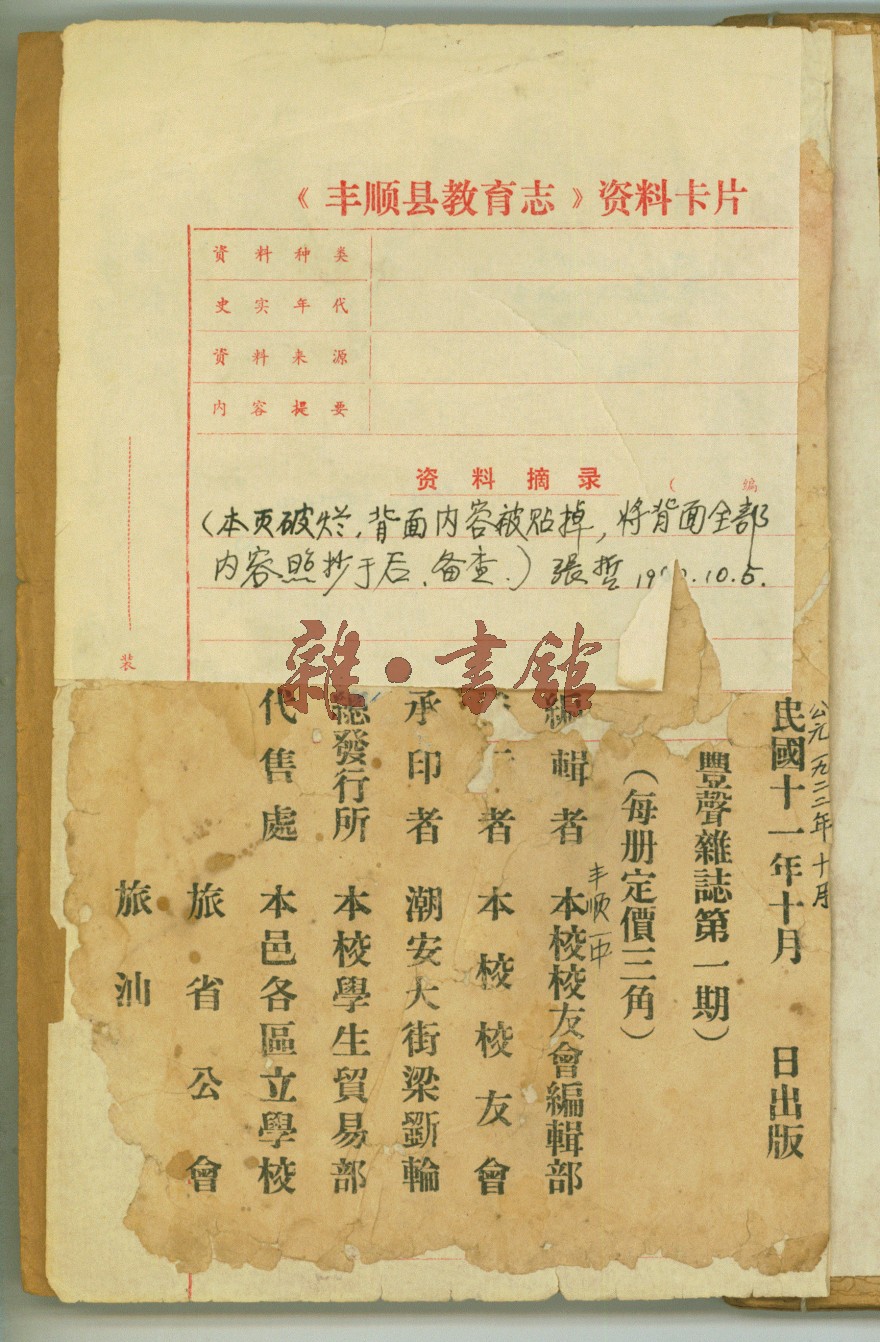 《丰顺县教育志》资料卡片
資料种类
史实年代
資料来源
内容提要
资料摘录
(編
(本页破烂,背面内容被贴掉,将背面全部
内容照抄于后、备查.)張哲 19 .10.5.
装
雜·書館
公元一九二二年十月
民國十一年十月 日出版
豐聲雜誌第一期)
(每册定價三角)
丰顺一中
編輯者 本校校友會編輯部
者 本校校友會
承印者 潮安大街梁斵輪
總發行所 本校學生貿易部
代售處 本邑各區立學校
旅省公會
旅汕